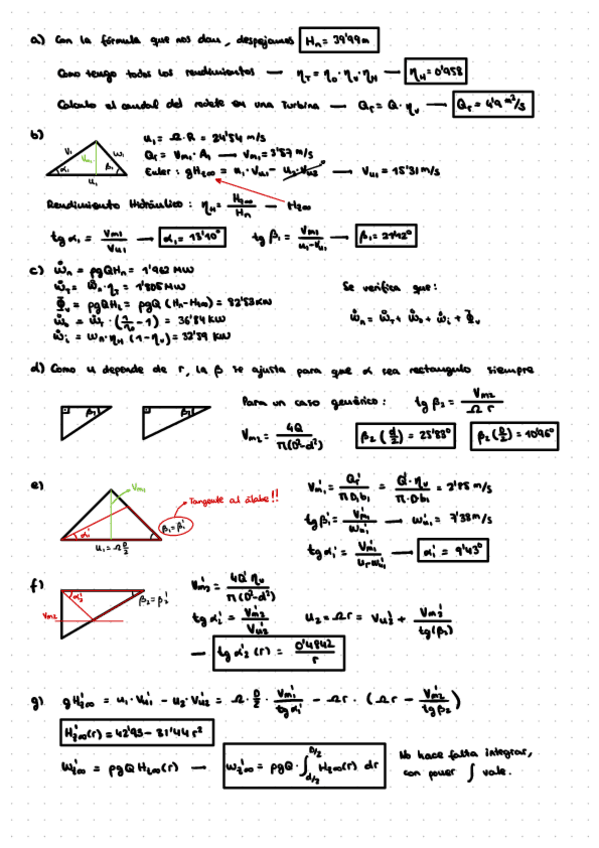 a) Con la fórmula que nos dan, despejamos Hn = 39'99m
Como tengo todos los rendimientos — ηT = ηo · ηv · ηH — ηH = 0'958
Calculo el caudal del rodete en una Turbina — Qr = Q · ηv — Qr = 4'9 m³/s
b) u1 = Ω · R = 24'54 m/s
Qr = Vm1 · A1 → Vm1 = 3'57 m/s
Euler: gHt∞ = u1 · Vu1 - u2 · Vu2 → Vu1 = 15'31 m/s
V1 Vm1 W1 α1 β1
u1
Rendimiento Hidráulico: ηH = Ht∞/Hn — Ht∞
tg α1 = Vm1/Vu1 → α1 = 13'10° tg β1 = Vm1/(u1-Vu1) → β1 = 21'12°
c) Ẇn = ρgQHn = 1'962 MW
Ẇt = Ẇn · ηT = 1'805 MW
Se verifica que:
Φ̇v = ρgQHL = ρgQ (Hn - Ht∞) = 82'53 KW
Ẇo = Ẇt · (1/ηo - 1) = 36'84 KW
Ẇn = Ẇt + Ẇo + Ẇi + Φ̇v
Ẇi = Wn · ηH (1 - ηv) = 32'59 KW
d) Como u depende de r, la β se ajusta para que α sea rectangulo siempre
β2 β2
Para un caso genérico: tg β2 = Vm2/(Ω r)
Vm2 = 4Q/(π(D²-d²)) β2 (d/2) = 25'83° β2 (D/2) = 10'96°
e) Vm1 Tangente al álabe!! β1 = β1'
α1'
u1 = Ω D/2
Vm1' = Qr'/(π D1 b1) = Q' · ηv/(π · D b1) = 2'85 m/s
tg β1' = Vm1'/Wu1' → Wu1' = 7'38 m/s
tg α1' = Vm1'/(u1-Wu1') → α1' = 9'43°
f) α2' β2 = β2'
Vm2
Vm2' = 4Q' ηv/(π(D²-d²))
tg α2' = Vm2'/Vu2' u2 = Ωr = Vu2' + Vm2'/tg(β2)
— tg α2' (r) = 0'4842/r
g) gHt∞' = u1 · Vu1' - u2 · Vu2' = Ω · D/2 · Vm1'/tg α1' - Ωr · (Ωr - Vm2'/tg β2)
Ht∞'(r) = 42'95 - 31'44 r²
Wt∞' = ρgQ Ht∞(r) → Wt∞' = ρgQ · ∫ d/2 D/2 Ht∞(r) dr
No hace falta integrar,
con poner ∫ vale.